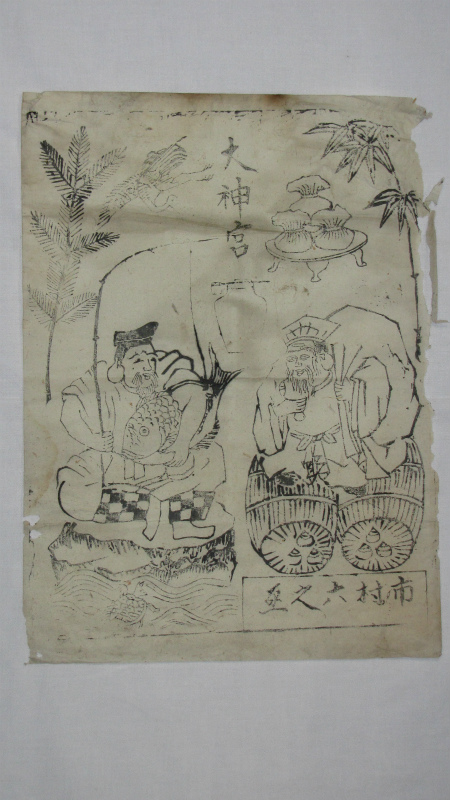 大神宮
市村六之丞